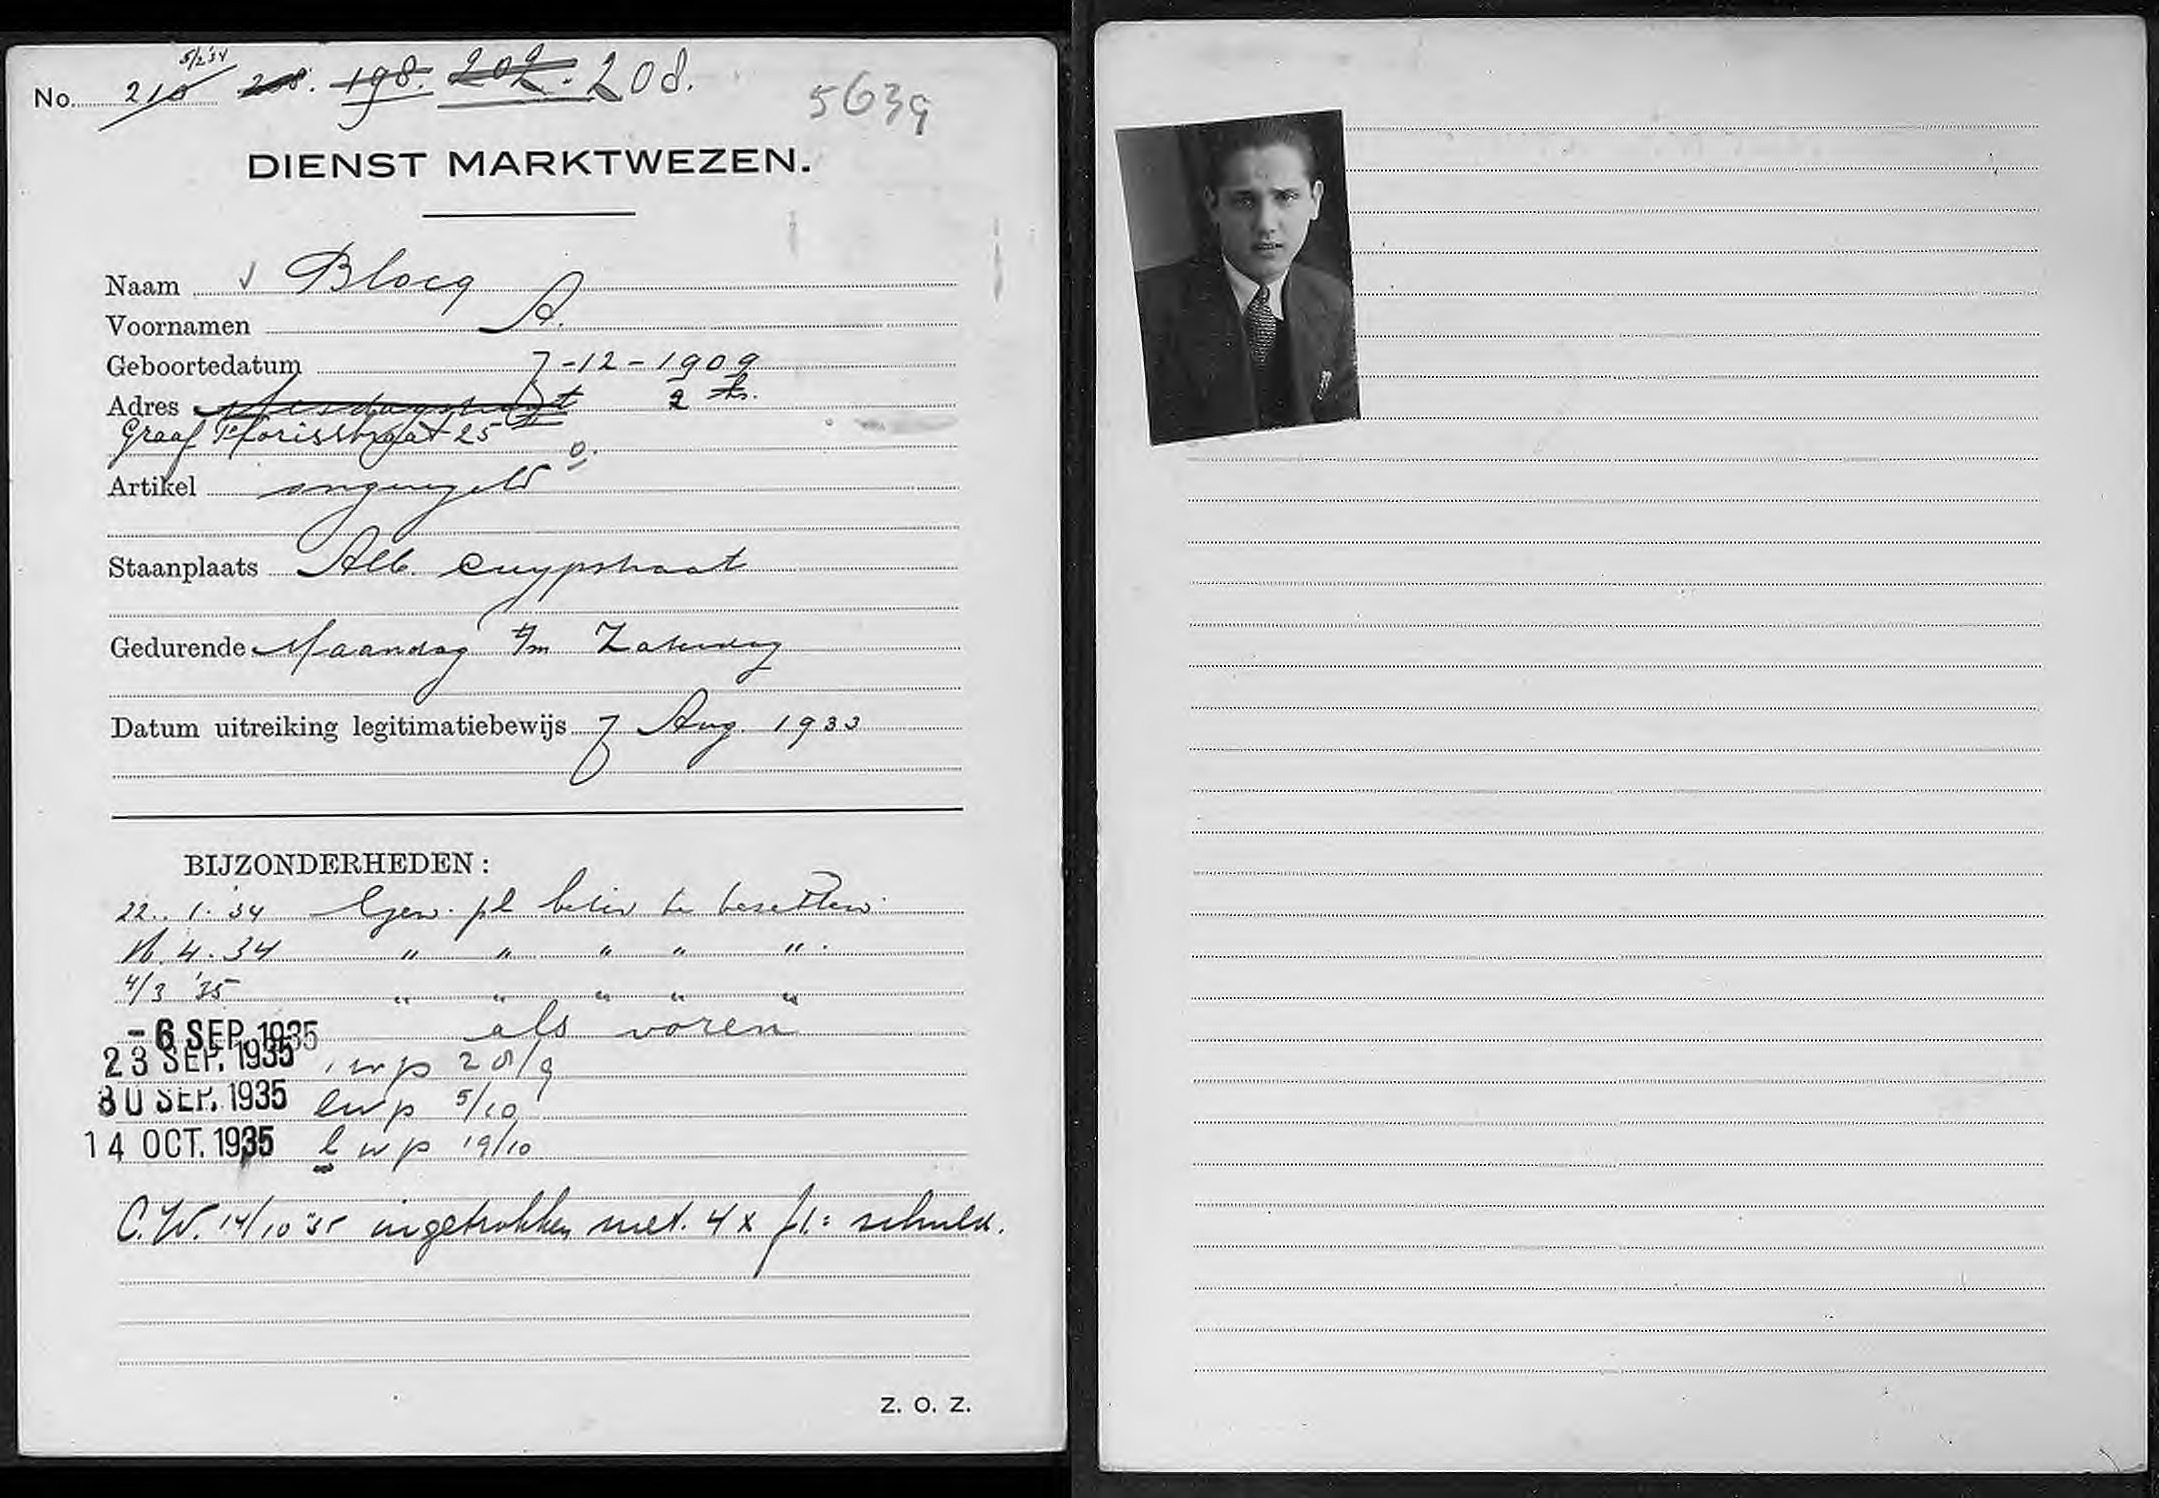 5/2'34
No. 210 208. 198. 202. 208.
5639
DIENST MARKTWEZEN.
Naam Blocq
Voornamen A.
Geboortedatum 7-12-1909
Adres Mesdagstraat 2 hs.
Graaf Florisstraat 25 II
Artikel ongeregeld o.
Staanplaats Alb. Cuypstraat
Gedurende Maandag t/m Zaterdag
Datum uitreiking legitimatiebewijs 7 Aug. 1933
BIJZONDERHEDEN:
22.1.34 Gew. pl te bezetten
16.4.34 " " " " ".
4/3 '35 " " " " "
-6 SEP. 1935 als voren
23 SEP. 1935 wp 28/9
30 SEP. 1935 lwp 5/10
14 OCT. 1935 lwp 19/10
C.W. 14/10 '35 ingetrokken met. 4 x f1.= schuld.
Z. O. Z.